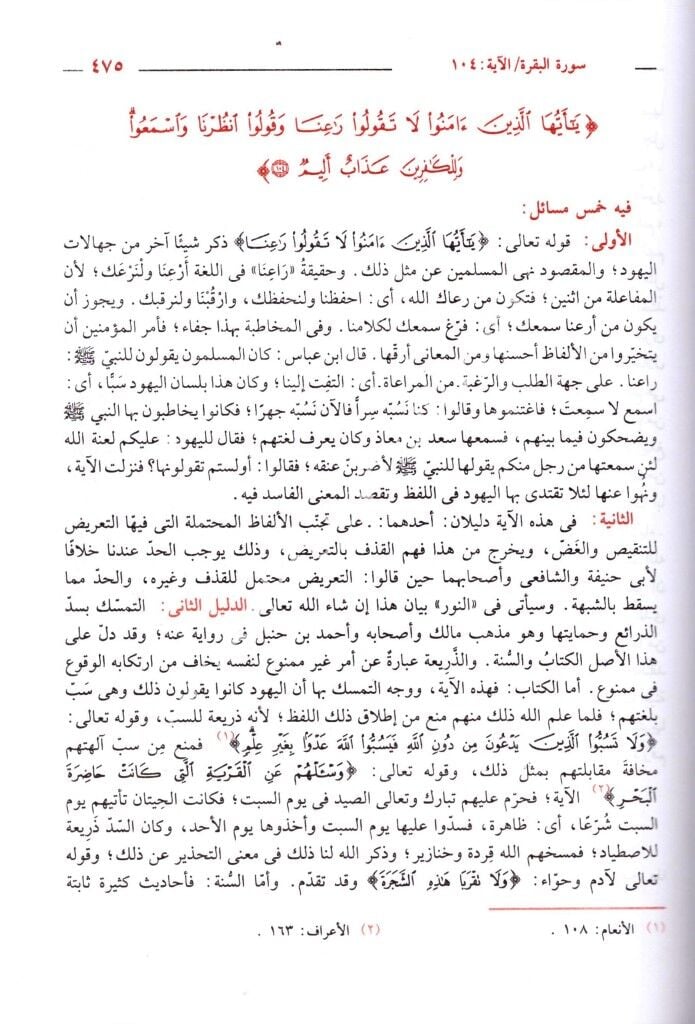 سورة البقرة/الآية: ١٠٤ ٤٧٥
﴿يَٰٓأَيُّهَا ٱلَّذِينَ ءَامَنُوا۟ لَا تَقُولُوا۟ رَٰعِنَا وَقُولُوا۟ ٱنظُرْنَا وَٱسْمَعُوا۟ۗ
وَلِلْكَٰفِرِينَ عَذَابٌ أَلِيمٌ ۝١٠٤﴾
فيه خمس مسائل:
الأولى: قوله تعالى: ﴿يَٰٓأَيُّهَا ٱلَّذِينَ ءَامَنُوا۟ لَا تَقُولُوا۟ رَٰعِنَا﴾ ذكر شيئًا آخر من جهالات
اليهود؛ والمقصود نهى المسلمين عن مثل ذلك. وحقيقةُ «رَاعِنَا» فى اللغة أَرْعِنَا ولْنَرْعَك؛ لأن
المفاعلة من اثنين؛ فتكون من رعاك الله، أى: احفظنا ولنحفظك، وارْقُبْنَا ولنرقبك. ويجوز أن
يكون من أرعنا سمعك؛ أى: فرّغ سمعك لكلامنا. وفى المخاطبة بهذا جفاء؛ فأمر المؤمنين أن
يتخيّروا من الألفاظ أحسنها ومن المعانى أرقّها. قال ابن عباس: كان المسلمون يقولون للنبيّ ﷺ:
راعنا. على جهة الطلب والرّغبة.من المراعاة.أى: التفِت إلينا؛ وكان هذا بلسان اليهود سَبًّا، أى:
اسمع لا سمعتَ؛ فاغتنموها وقالوا: كنا نَسُبّه سِراً فالآن نَسُبّه جهرًا؛ فكانوا يخاطبون بها النبي ﷺ
ويضحكون فيما بينهم، فسمعها سعد بن معاذ وكان يعرف لغتهم؛ فقال لليهود: عليكم لعنة الله
لئن سمعتها من رجل منكم يقولها للنبيّ ﷺ لأضربنّ عنقه؛ فقالوا: أولستم تقولونها؟ فنزلت الآية،
ونُهُوا عنها لئلا تقتدى بها اليهود فى اللفظ وتقصد المعنى الفاسد فيه.
الثانية: فى هذه الآية دليلان: أحدهما: على تجنّب الألفاظ المحتملة التى فيها التعريض
للتنقيص والغَضّ، ويخرج من هذا فهم القذف بالتعريض، وذلك يوجب الحدّ عندنا خلافًا
لأبى حنيفة والشافعى وأصحابهما حين قالوا: التعريض محتمل للقذف وغيره، والحدّ مما
يسقط بالشبهة. وسيأتى فى «النور» بيان هذا إن شاء الله تعالى. الدليل الثانى: التمسك بسدّ
الذرائع وحمايتها وهو مذهب مالك وأصحابه وأحمد بن حنبل فى رواية عنه؛ وقد دلّ على
هذا الأصل الكتابُ والسُّنة. والذَّريعة عبارةٌ عن أمر غير ممنوع لنفسه يخاف من ارتكابه الوقوع
فى ممنوع. أما الكتاب: فهذه الآية، ووجه التمسك بها أن اليهود كانوا يقولون ذلك وهى سَبّ
بلغتهم؛ فلما علم الله ذلك منهم منع من إطلاق ذلك اللفظ؛ لأنه ذريعة للسبّ، وقوله تعالى:
﴿وَلَا تَسُبُّوا۟ ٱلَّذِينَ يَدْعُونَ مِن دُونِ ٱللَّهِ فَيَسُبُّوا۟ ٱللَّهَ عَدْوًۢا بِغَيْرِ عِلْمٍۗ﴾(١) فمنع من سبّ آلهتهم
مخافةَ مقابلتهم بمثل ذلك، وقوله تعالى: ﴿وَسْـَٔلْهُمْ عَنِ ٱلْقَرْيَةِ ٱلَّتِى كَانَتْ حَاضِرَةَ
ٱلْبَحْرِ﴾(٢) الآية؛ فحرّم عليهم تبارك وتعالى الصيد فى يوم السبت؛ فكانت الحِيتان تأتيهم يوم
السبت شُرَّعًا، أى: ظاهرة، فسدّوا عليها يوم السبت وأخذوها يوم الأحد، وكان السّدّ ذَرِيعة
للاصطياد؛ فمسخهم الله قِردة وخنازير؛ وذكر الله لنا ذلك فى معنى التحذير عن ذلك؛ وقوله
تعالى لآدم وحوّاء: ﴿وَلَا تَقْرَبَا هَٰذِهِ ٱلشَّجَرَةَ﴾ وقد تقدّم. وأمّا السُّنة: فأحاديث كثيرة ثابتة
(١) الأنعام: ١٠٨. (٢) الأعراف: ١٦٣.